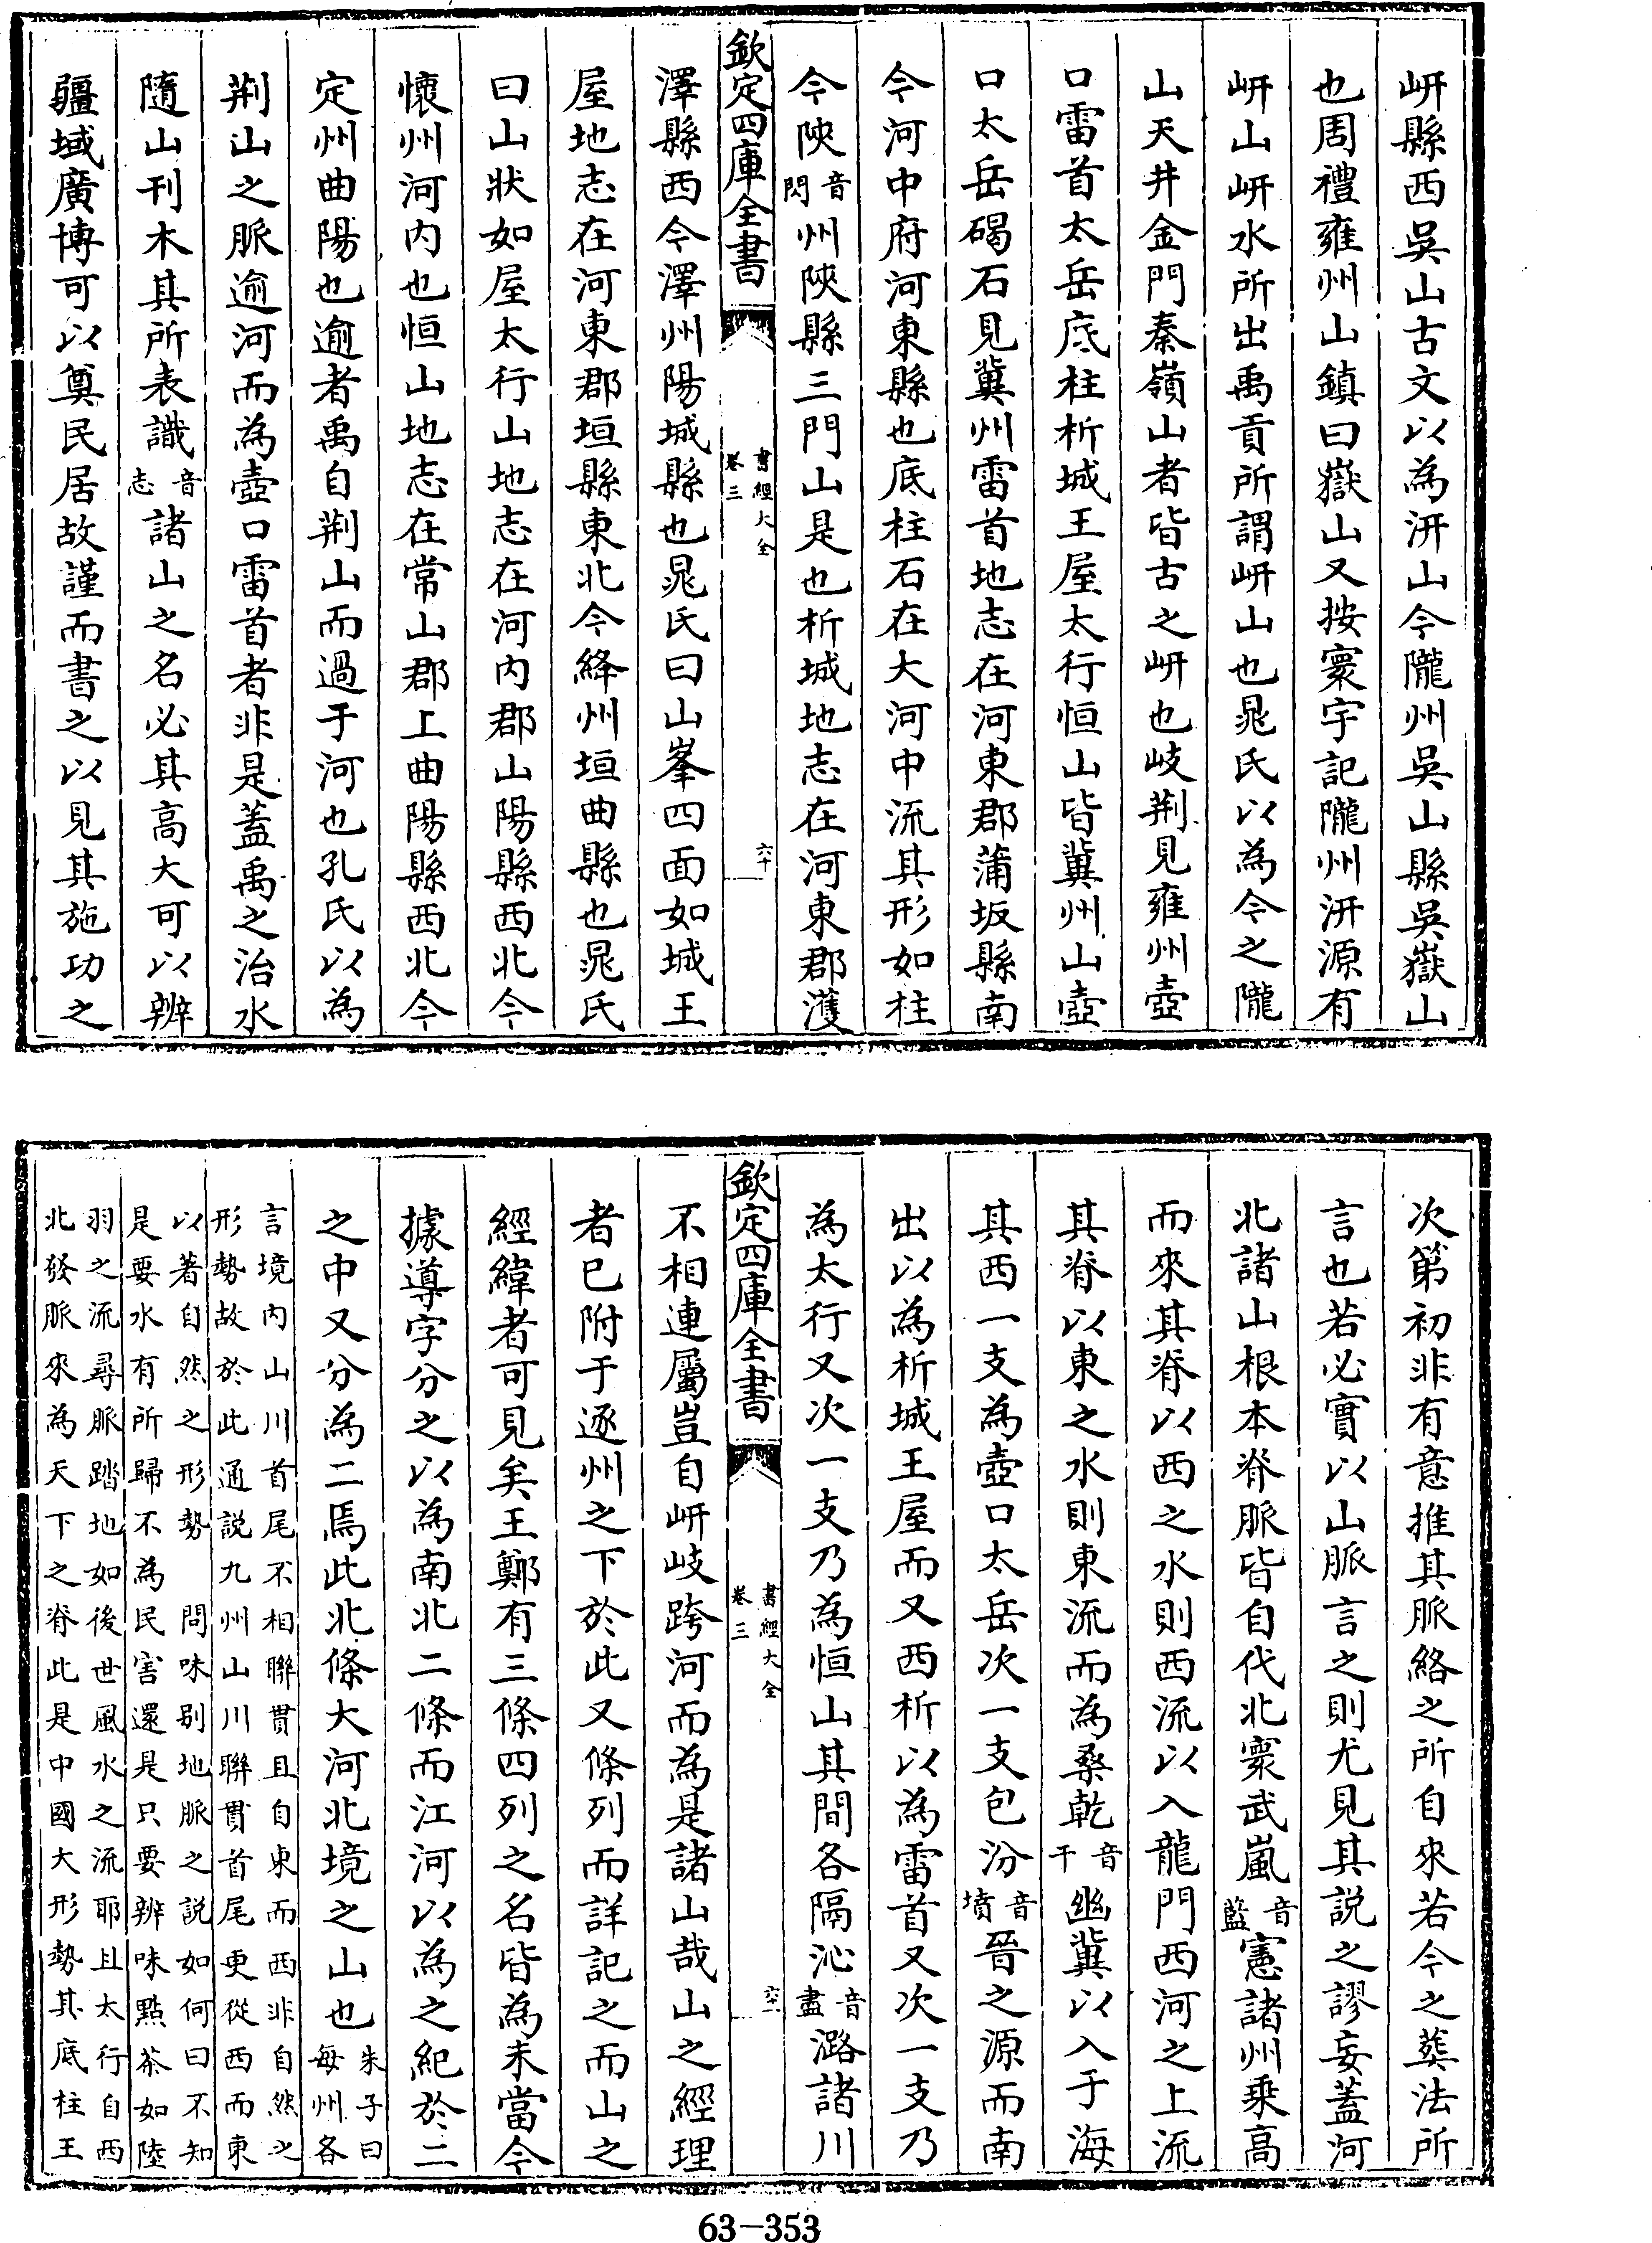 岍縣西吳山古文以為汧山今隴州吳山縣吳嶽山
也周禮雍州山鎮曰嶽山又按寰宇記隴州汧源有
岍山岍水所出禹貢所謂岍山也晁氏以為今之隴
山天井金門秦嶺山者皆古之岍也岐荆見雍州壺
口雷首太岳底柱析城王屋太行恒山皆冀州山壺
口太岳碣石見冀州雷首地志在河東郡蒲坂縣南
今河中府河東縣也底柱石在大河中流其形如柱
今陜音閃州陜縣三門山是也析城地志在河東郡濩
欽定四庫全書
書經大全
卷三
六十
澤縣西今澤州陽城縣也晁氏曰山峯四面如城王
屋地志在河東郡垣縣東北今絳州垣曲縣也晁氏
曰山狀如屋太行山地志在河內郡山陽縣西北今
懷州河內也恒山地志在常山郡上曲陽縣西北今
定州曲陽也逾者禹自荆山而過于河也孔氏以為
荆山之脈逾河而為壺口雷首者非是蓋禹之治水
隨山刊木其所表識音志諸山之名必其高大可以辨
疆域廣博可以奠民居故謹而書之以見其施功之
次第初非有意推其脈絡之所自來若今之葬法所
言也若必實以山脈言之則尤見其說之謬妄蓋河
北諸山根本脊脈皆自代北寰武嵐音藍憲諸州乘高
而來其脊以西之水則西流以入龍門西河之上流
其脊以東之水則東流而為桑乾音干幽冀以入于海
其西一支為壺口太岳次一支包汾音墳晉之源而南
出以為析城王屋而又西析以為雷首又次一支乃
為太行又次一支乃為恒山其間各隔沁音盡潞諸川
欽定四庫全書
書經大全
卷三
六十一
不相連屬豈自岍岐跨河而為是諸山哉山之經理
者已附于逐州之下於此又條列而詳記之而山之
經緯者可見矣王鄭有三條四列之名皆為未當今
據導字分之以為南北二條而江河以為之紀於二
之中又分為二焉此北條大河北境之山也朱子曰每州各
言境內山川首尾不相聯貫且自東而西非自然之
形勢故於此通說九州山川聯貫首尾更從西而東
以著自然之形勢　問味别地脈之說如何曰不知
是要水有所歸不為民害還是只要辨味點茶如陸
羽之流尋脈踏地如後世風水之流耶且太行自西
北發脈來為天下之脊此是中國大形勢其底柱王
63-353